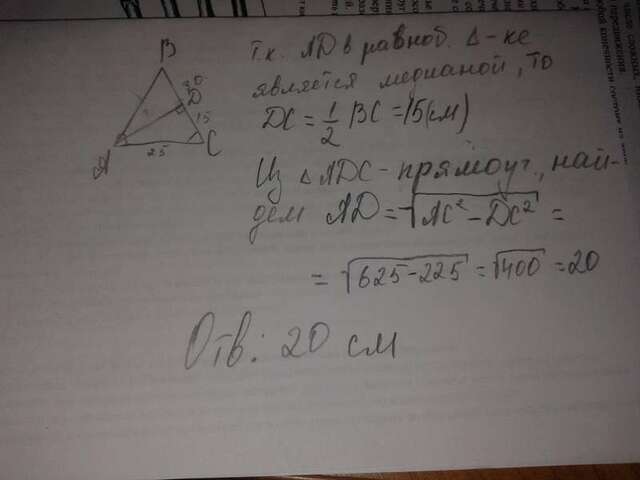 B
30
D
15
A
25
C
Т.к. AD в равноб. Δ-ке
является медианой, то
DC = 1/2 BC = 15(см)
Из ΔADC - прямоуг., най-
дем AD = √AC² - DC² =
= √625-225 = √400 = 20
Отв: 20 см